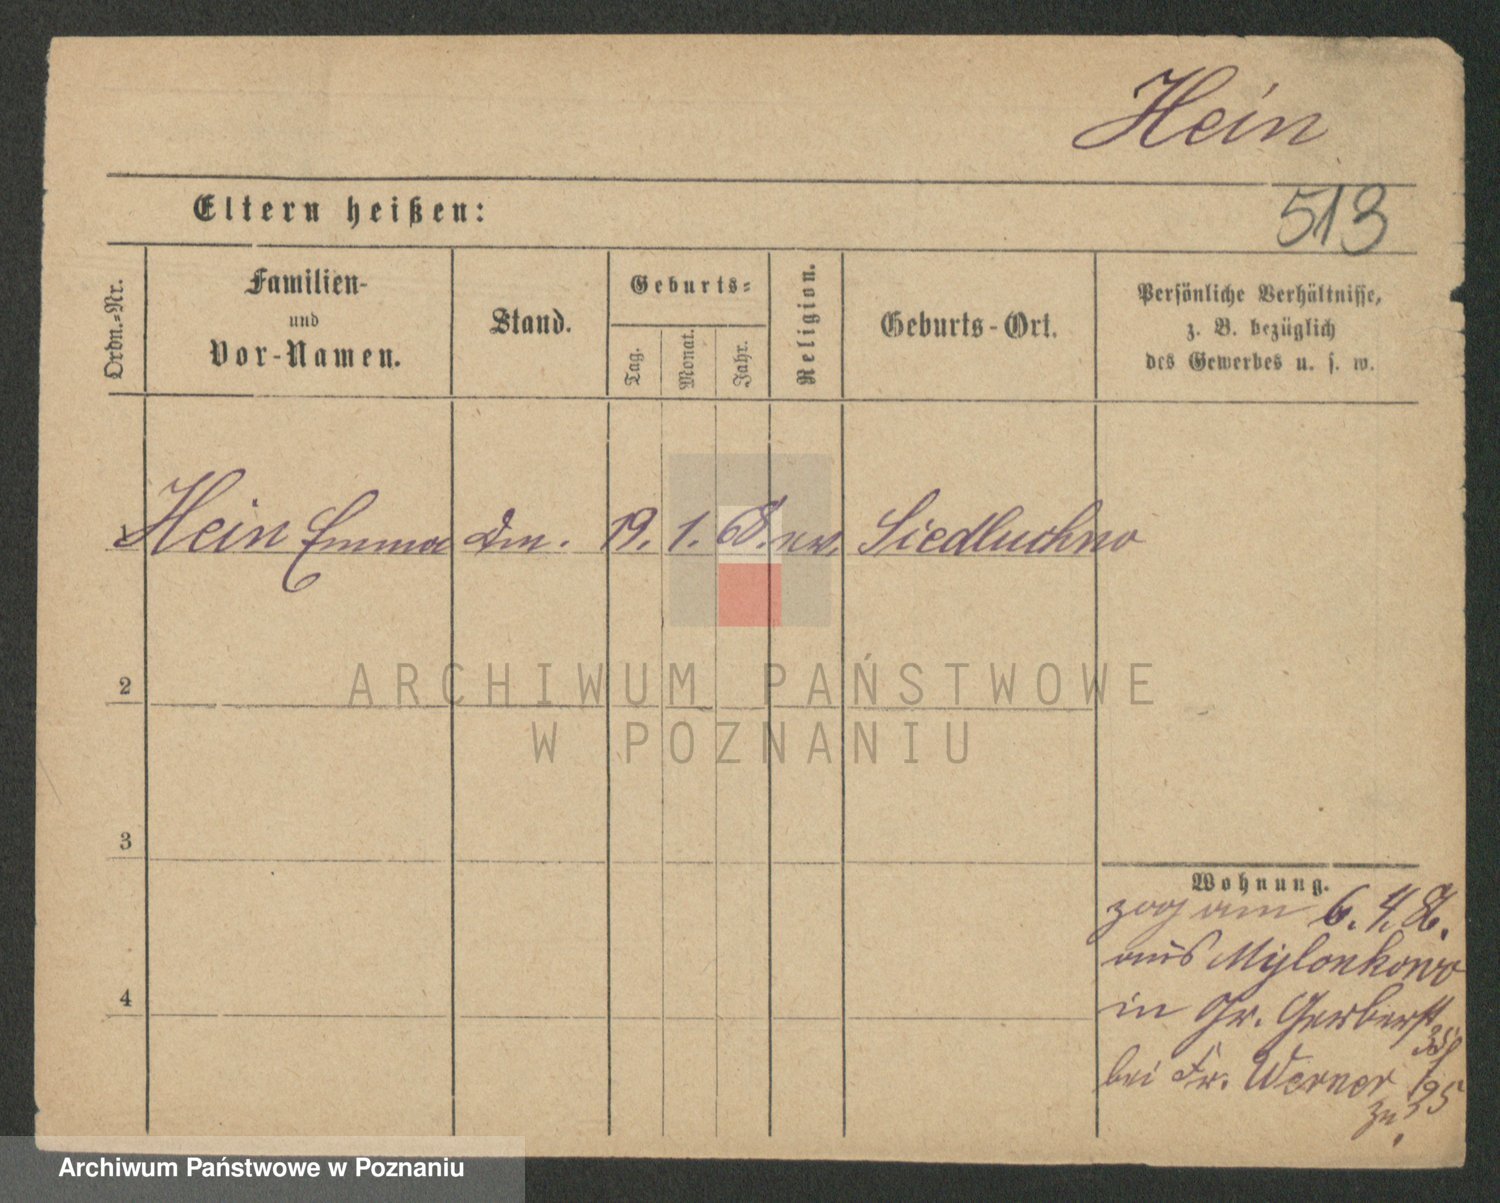 Hein
Eltern heißen:
513
Ordn.-Nr.
Familien-
und
Vor-Namen.
Stand.
Geburts-
Tag.
Monat.
Jahr.
Religion.
Geburts-Ort.
Persönliche Verhältnisse,
z. B. bezüglich
des Gewerbes u. s. w.
1 Hein Emma 19. 1. 68. ev. Siedluchno
2
ARCHIWUM PAŃSTWOWE
W POZNANIU
3
4
Wohnung.
zog am 6. 4.
aus Mylonkowo
in Gr. Gerberst
bei Fr. Werner
Archiwum Państwowe w Poznaniu